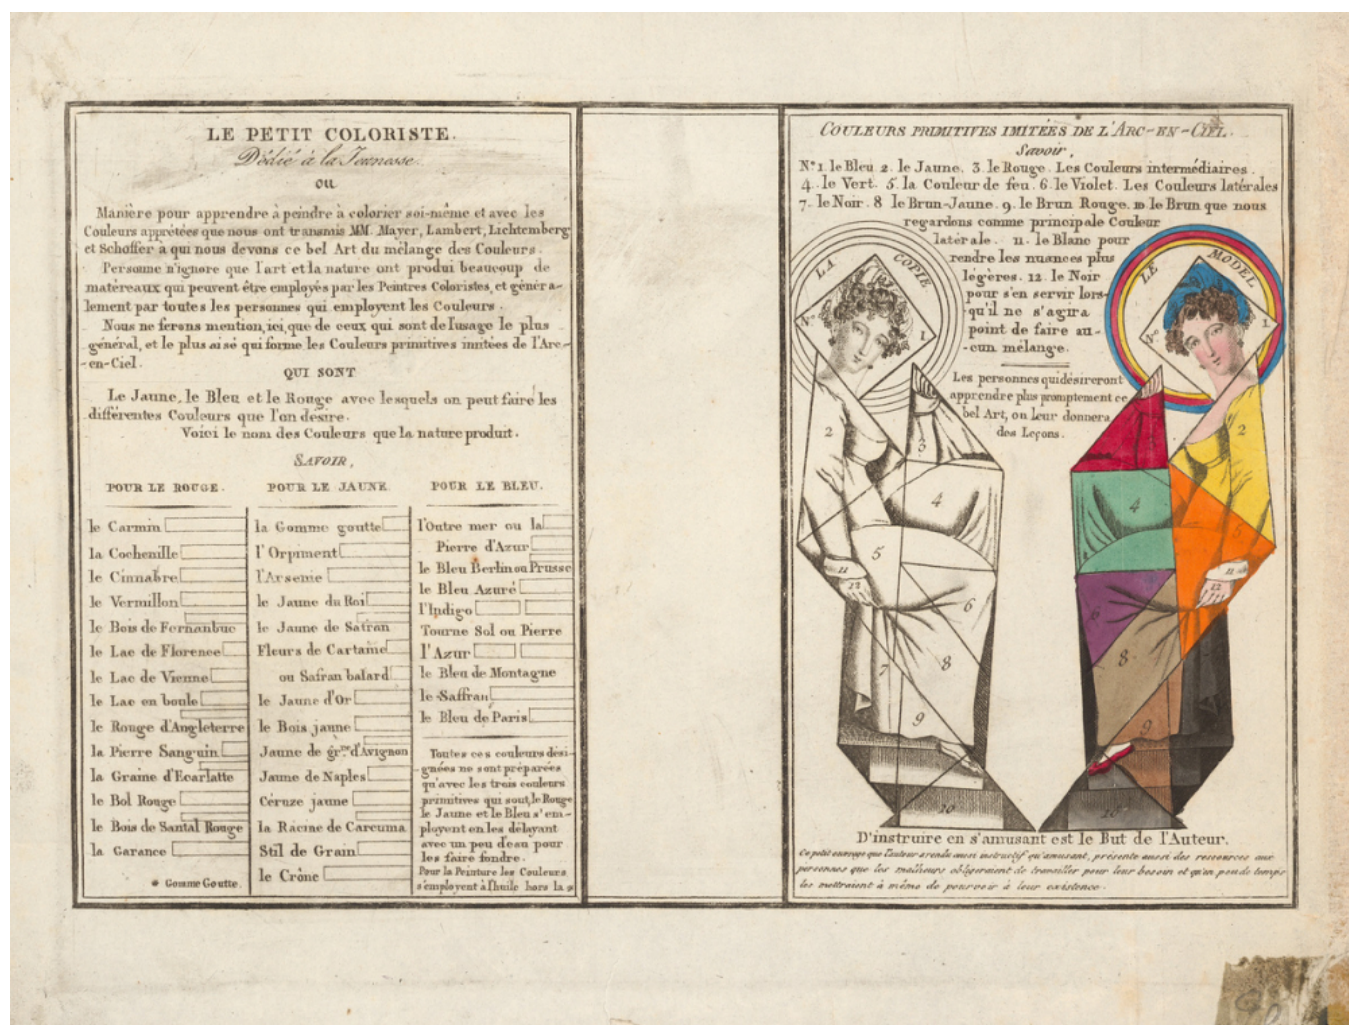 LE PETIT COLORISTE.
Dédié à la Jeunesse.
OU
Manière pour apprendre à peindre à colorier soi-même et avec les
Couleurs apprêtées que nous ont transmis MM. Mayer, Lambert, Lichtemberg
et Schoffer à qui nous devons ce bel Art du mélange des Couleurs.
Personne n'ignore que l'art et la nature ont produi beaucoup de
matéreaux qui peuvent être employés par les Peintres Coloristes, et généra-
lement par toutes les personnes qui employent les Couleurs.
Nous ne ferons mention, ici, que de ceux qui sont de l'usage le plus
général, et le plus aisé qui forme les Couleurs primitives imitées de l'Arc-
-en-Ciel.
QUI SONT
Le Jaune, le Bleu et le Rouge avec lesquels on peut faire les
différentes Couleurs que l'on désire.
Voici le nom des Couleurs que la nature produit.
SAVOIR,
POUR LE ROUGE.
le Carmin
la Cochenille
le Cinnabre
le Vermillon
le Bois de Fernanbuc
le Lac de Florence
le Lac de Vienne
le Lac en boule
le Rouge d'Angleterre
la Pierre Sanguin
la Graine d'Ecarlatte
le Bol Rouge
le Bois de Santal Rouge
la Garance
* Gomme Goutte.
POUR LE JAUNE
la Gomme goutte
l'Orpiment
l'Arsenic
le Jaune du Roi
le Jaune de Safran
Fleurs de Cartame
ou Safran balard
le Jaune d'Or
le Bois jaune
Jaune de gr.ne d'Avignon
Jaune de Naples
Céruze jaune
la Racine de Carcuma
Stil de Grain
le Crône
POUR LE BLEU.
l'Outre mer ou la
Pierre d'Azur
le Bleu Berlin ou Prusse
le Bleu Azuré
l'Indigo
Tourne Sol ou Pierre
l'Azur
le Bleu de Montagne
le Saffran
le Bleu de Paris
Toutes ces couleurs dési-
-gnées ne sont préparées
qu'avec les trois couleurs
primitives qui sont, le Rouge
le Jaune et le Bleu s'em-
ployent en les délayant
avec un peu d'eau pour
les faire fondre.
Pour la Peinture les Couleurs
s'employent à l'huile hors la *
COULEURS PRIMITIVES IMITÉES DE L'ARC-EN-CIEL.
Savoir,
N° 1. le Bleu 2. le Jaune. 3. le Rouge. Les Couleurs intermédiaires.
4. le Vert. 5. la Couleur de feu. 6. le Violet. Les Couleurs latérales
7. le Noir. 8 le Brun-Jaune. 9. le Brun Rouge. 10 le Brun que nous
regardons comme principale Couleur
latérale. 11. le Blanc pour
rendre les nuances plus
légères. 12. le Noir
pour s'en servir lors-
qu'il ne s'agira
point de faire au-
-cun mélange.
Les personnes qui désireront
apprendre plus promptement ce
bel Art, on leur donnera
des Leçons.
LA COPIE.
N° 1
2
3
4
5
11
12
6
7
8
9
10
LE MODEL
N° 1.
2
4
5
11
12
6
8
9
10
D'instruire en s'amusant est le But de l'Auteur.
Ce petit ouvrage que l'auteur a rendu aussi instructif qu'amusant, présente aussi des ressources aux
personnes que les malheurs obligeraient de travailler pour leur besoin et qu'en peu de temps
les mettraient à même de pourvoir à leur existence.